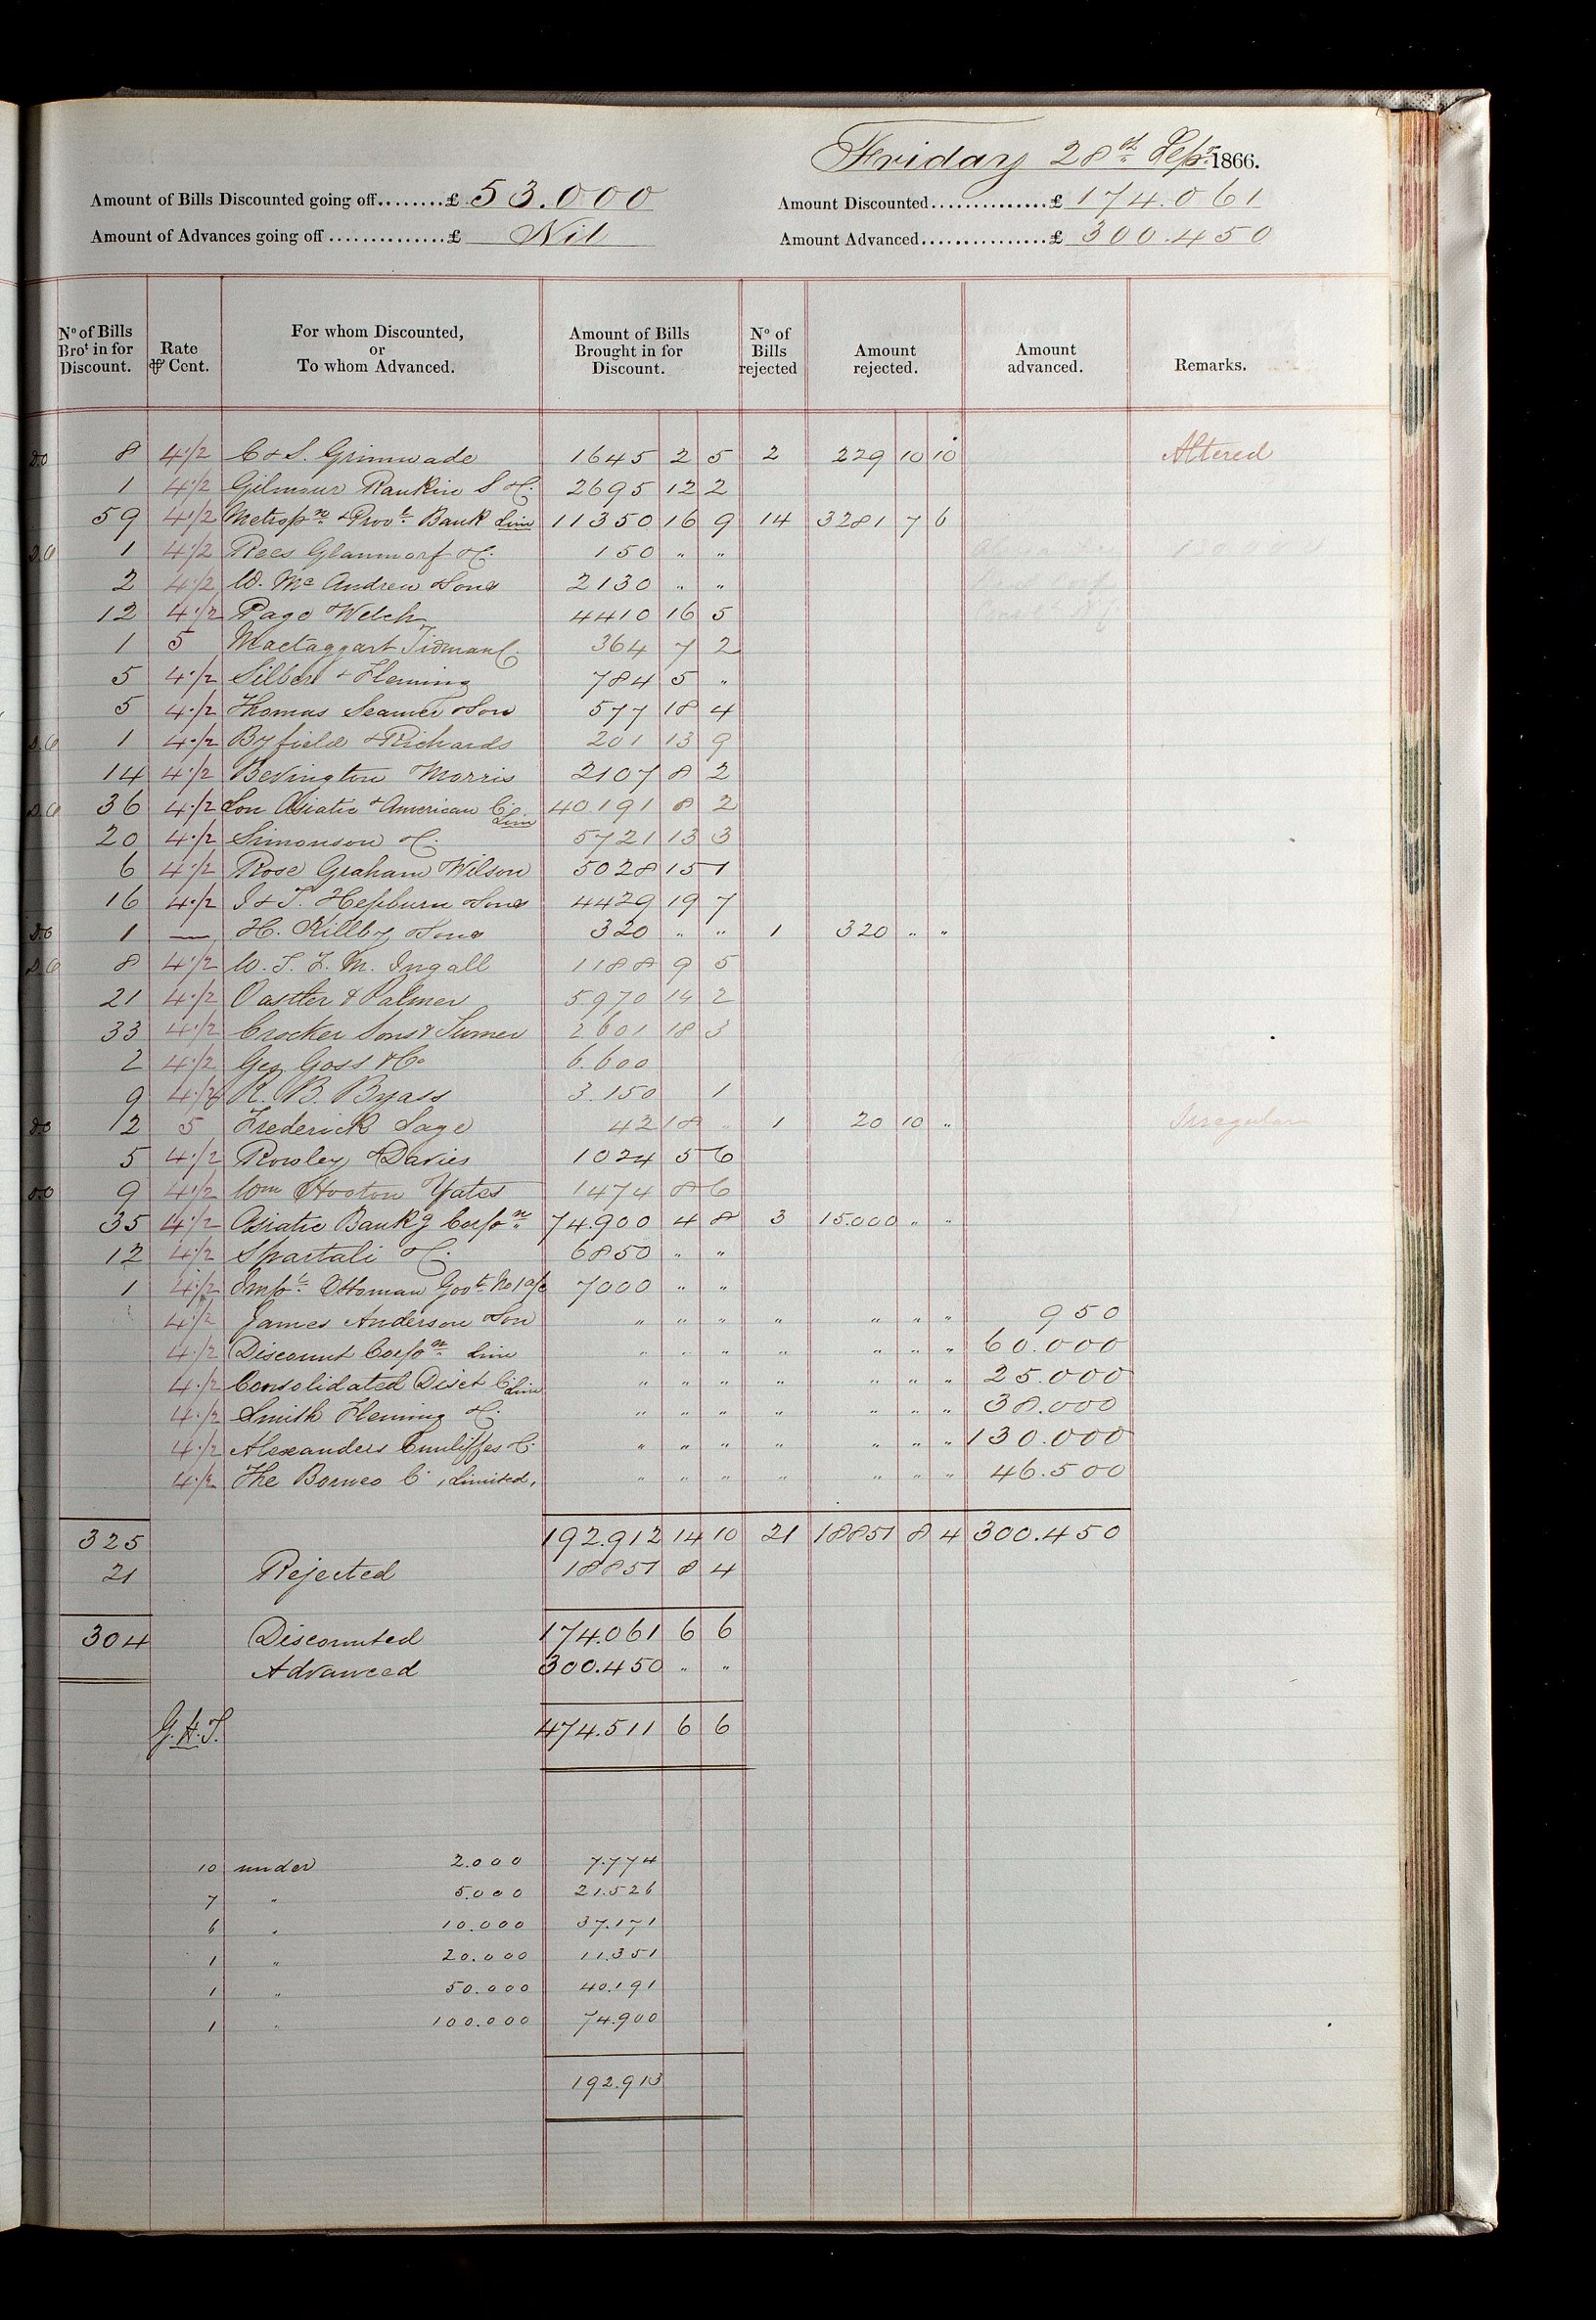 Friday 28th Sepr. 1866.
Amount of Bills Discounted going off........£ 53.000 Amount Discounted..............£ 174.061
Amount of Advances going off ..............£ Nil Amount Advanced................£ 300.450
No of Bills Brot in for Discount. Rate ⅌ Cent. For whom Discounted, or To whom Advanced. Amount of Bills Brought in for Discount. No of Bills rejected Amount rejected. Amount advanced. Remarks.
D.O 8 4 1/2 C & S. Grimwade 1645 2 5 2 229 10 10 Altered
1 4 1/2 Gilmour Rankin S & C. 2695 12 2
59 4 1/2 Metropn. & Provl. Bank Lim 11350 16 9 14 3281 7 6
D.O 1 4 1/2 Rees 150 " "
2 4 1/2 W. Mc Andrew & Sons 2130 " "
12 4 1/2 Page & Welch 4410 16 5
1 5 Mactaggart Tidman C. 364 7 2
5 4 1/2 Silber & Fleming 784 5 "
5 4 1/2 Thomas Seamer & Son 577 18 4
D.O 1 4 1/2 Byfield & Richards 201 13 9
14 4 1/2 Bevington & Morris 2107 8 2
D.O 36 4 1/2 Lon Asiatic & American C. Lim 40.191 8 2
20 4 1/2 Simonson & C. 5721 13 3
6 4 1/2 Rose Graham Wilson 5028 15 1
16 4 1/2 J & T. Hepburn & Sons 4429 19 7
D.O 1 — H. Killby & Sons 320 " " 1 320 " "
D.O 8 4 1/2 W. S. F. M. Ingall 1188 9 5
21 4 1/2 Oastler & Palmer 5970 14 2
33 4 1/2 Crocker Sons & Turner 2601 18 3
2 4 1/2 Geo Goss & Co 6.600
9 4 1/2 R. B. Byass 3.150 1
D.O 12 5 Frederick Sage 42 18 " 1 20 10 " Irregular
5 4 1/2 Rowley & Davies 1024 5 6
D.O 9 4 1/2 Wm Hooton Yates 1474 8 6
35 4 1/2 Asiatic Bankg Corpn. 74.900 4 8 3 15.000 " "
12 4 1/2 Spartali & C. 6850 " "
1 4 1/2 Impl. Ottoman Govt. No 1 a/c 7000 " "
4 1/2 James Anderson & Son " " " " " " " 950
4 1/2 Discount Corpn. Lim " " " " " " " 60.000
4 1/2 Consolidated Disct C. Lim " " " " " " " 25.000
4 1/2 Smith Fleming & C. " " " " " " " 38.000
4 1/2 Alexanders Cunliffes & C. " " " " " " " 130.000
4 1/2 The Borneo C. , Limited, " " " " " " " 46.500
325 192.912 14 10 21 18851 8 4 300.450
21 Rejected 18851 8 4
304 Discounted 174.061 6 6
Advanced 300.450 " "
G.H.T. 474.511 6 6
10 under 2.000 7.774
7 " 5.000 21.526
6 " 10.000 37.171
1 " 20.000 11.351
1 " 50.000 40.191
1 " 100.000 74.900
192.913